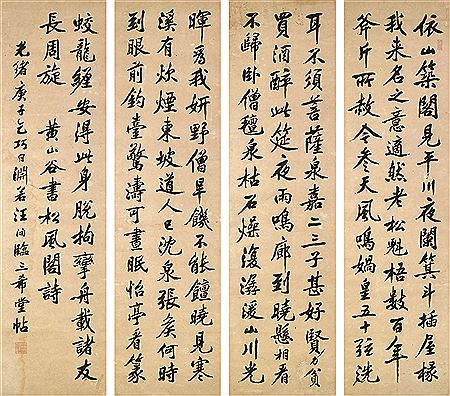 依山築閣見平川夜闌箕斗插屋椽
我來名之意適然老松魁梧數百年
斧斤所赦今參天風鳴媧皇五十弦洗
耳不須菩薩泉嘉二三子甚好賢力貧
買酒醉此筵夜雨鳴廊到曉懸相看
不歸臥僧氊泉枯石燥復潺湲山川光
暉為我妍野僧旱饑不能饘曉見寒
溪有炊煙東坡道人已沈泉張侯何時
到眼前釣臺驚濤可晝眠怡亭看篆
蛟龍纏安得此身脫拘攣舟載諸友
長周旋 黃山谷書松風閣詩
光緒庚子乞巧日淵若汪洵臨三希堂帖